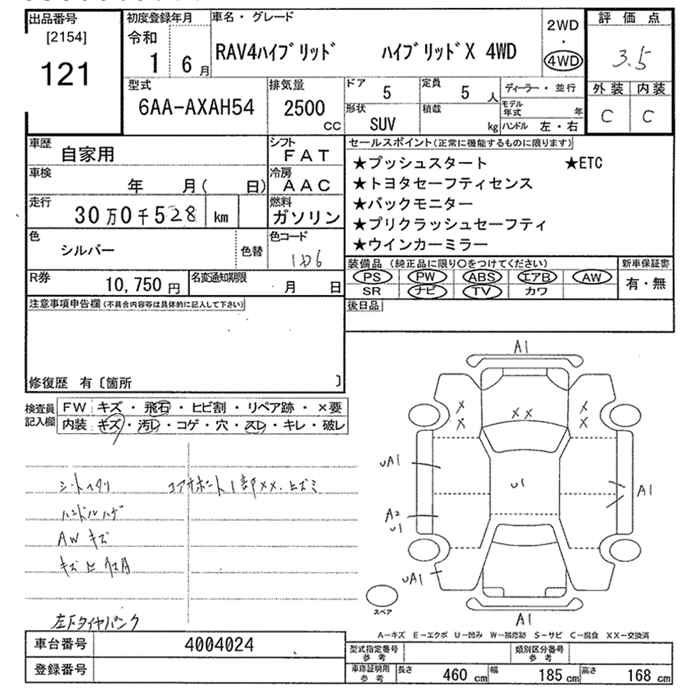 出品番号
[2154]
121
初度登録年月
令和
1 6月
車名・グレード
RAV4ハイブリッド ハイブリッドX 4WD
2WD
・
4WD
評価点
3.5
外装 内装
C C
型式
6AA-AXAH54
排気量
2500
cc
ドア 5
定員 5 人
ディーラー・並行
形状
SUV
積載
kg
モデル年式 年
ハンドル 左・右
車歴 自家用
シフト
FAT
車検 年 月( 日)
冷房
AAC
走行 30万0千528 km
燃料
ガソリン
色 シルバー 色替
色コード
1D6
R券 10,750円
名変通知期限 月 日
セールスポイント(正常に機能するものに限ります)
★プッシュスタート ★ETC
★トヨタセーフティセンス
★バックモニター
★プリクラッシュセーフティ
★ウインカーミラー
装備品(純正品に限り○をつけてください)
新車保証書
PS PW ABS エアB AW
有・無
SR ナビ TV カワ
後日品
注意事項申告欄(不具合内容等は具体的に記入して下さい)
修復歴 有〔箇所 〕
検査員
記入欄
FW キズ・飛石・ヒビ割・リペア跡・×要
内装 キズ・汚レ・コゲ・穴・スレ・キレ・破レ
シートヘタリ
コアサポート1部××.ヒズミ
ハンドルハゲ
AWキズ
左下タイヤパンク
A1
××
×
×
×
×
uA1
u1
A1
A2
u1
uA1
A1
スペア
A-キズ E-エクボ U-凹み W-補修跡 S-サビ C-腐食 XX-交換済
車台番号 4004024
登録番号
型式指定番号
参考
類別区分番号
参考
車庫証明用
参考
長さ 460 cm 幅 185 cm 高さ 168 cm